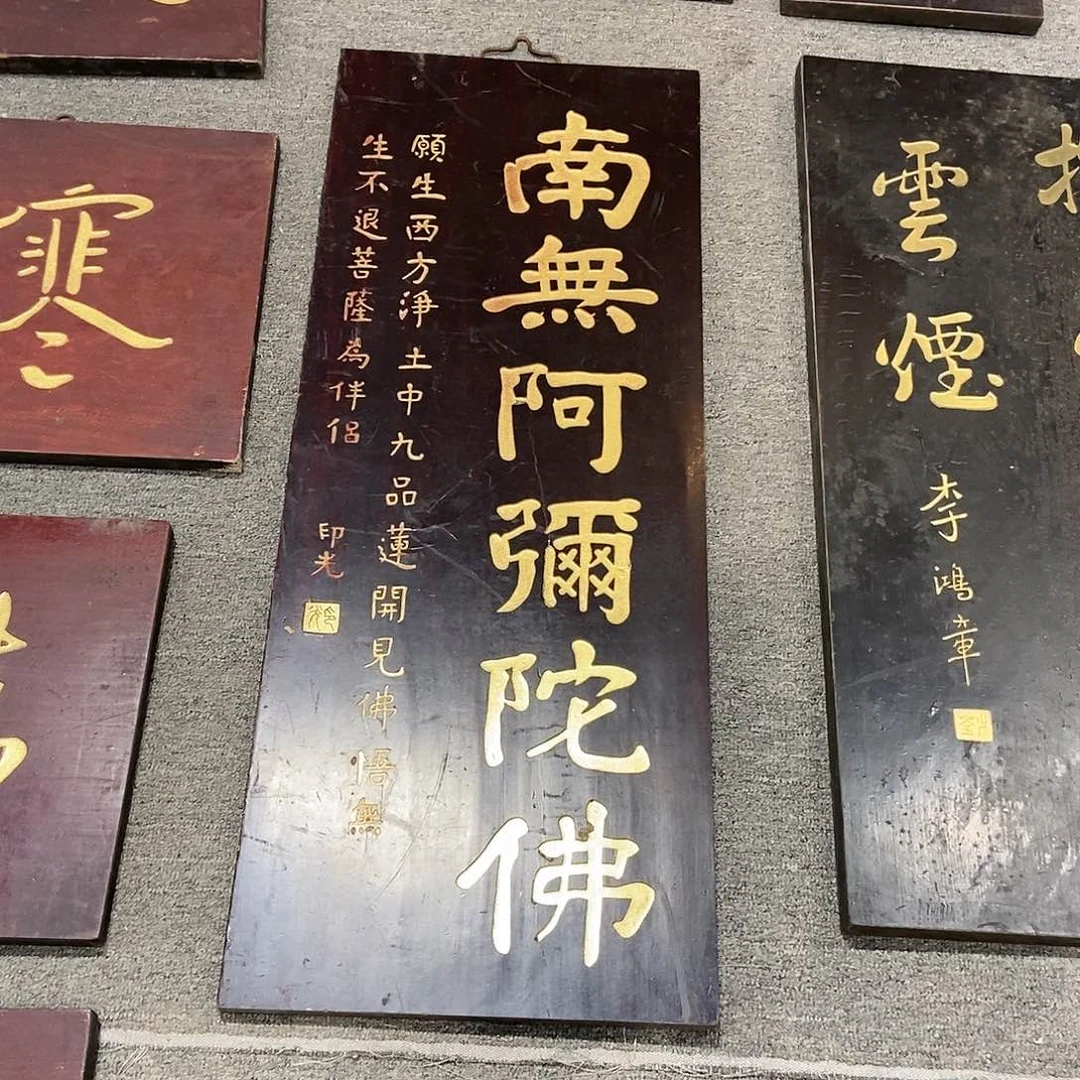 雲煙
李鴻章
南無阿彌陀佛
願生西方淨土中九品蓮開見佛悟無
生不退菩薩為伴侶
印光
寒